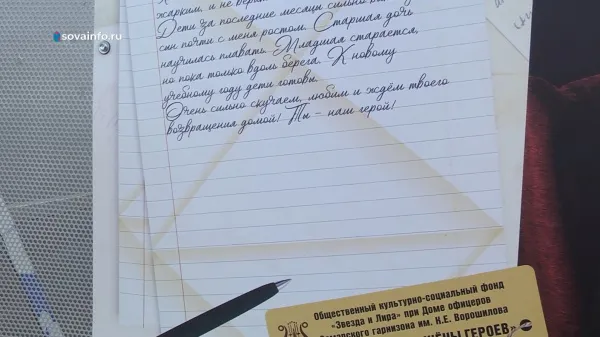 sovainfo.ru
жарким, и не
Дети за последние месяцы сильно
сын почти с меня ростом. Старшая дочь
научилась плавать. Младшая старается,
но пока только вдоль берега. К новому
учебному году дети готовы.
Очень сильно скучаем, любим и ждём твоего
возвращения домой! Ты - наш герой!
Общественный культурно-социальный фонд
"Звезда и Лира" при Доме офицеров
Самарского гарнизона им. К.Е. Ворошилова
ЖЁНЫ ГЕРОЕВ"